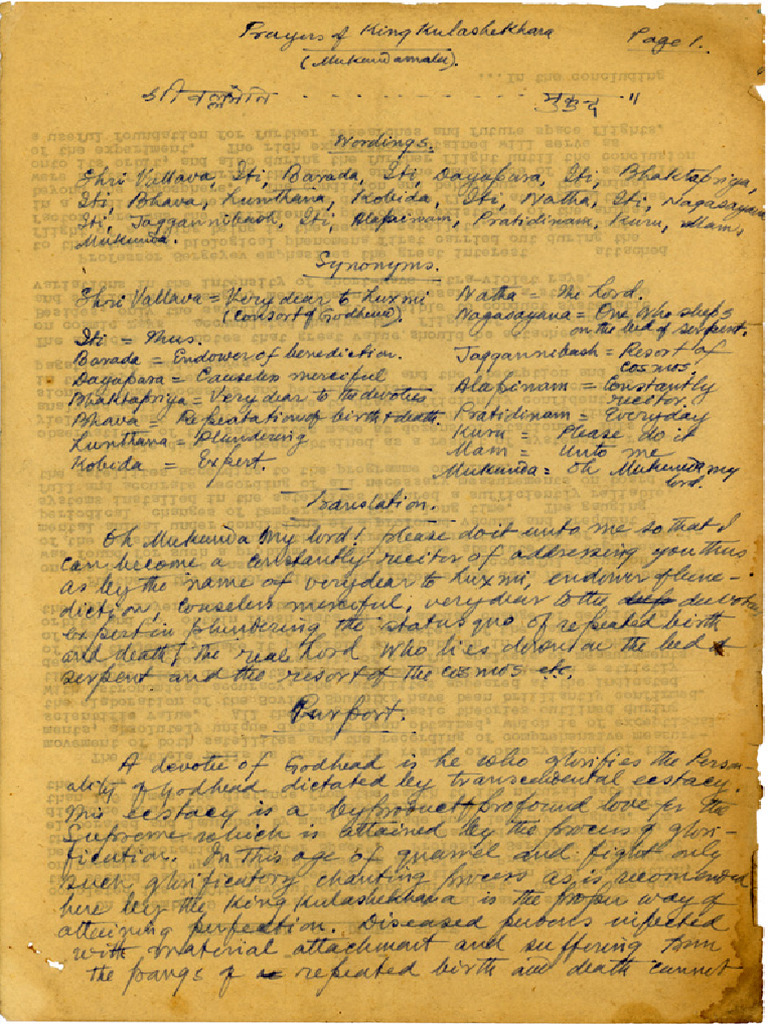 Prayers of King Kulashekhara
(Mukundamala).
Page 1.
श्रीवल्लभेति - - - - - - - - मुकुन्द ॥
Wordings.
Shri Vallava, Iti, Barada, Iti, Dayapara, Iti, Bhaktapriya,
Iti, Bhava, Lunthana, Kobida, Iti, Natha, Iti, Nagasayana
Iti, Jaggannibash, Iti, Alapinam, Pratidinam, Kuru, Mam,
Mukunda.
Synonyms.
Shri Vallava = Very dear to Luxmi
(Consort of Godhead).
Iti = Thus.
Barada = Endower of benediction.
Dayapara = Causeless merciful
Bhaktapriya = Very dear to the devotees
Bhava = Repeatation of birth & death.
Lunthana = Plundering
Kobida = Expert.
Natha = The Lord.
Nagasayana = One who sleeps
on the bed of serpent.
Jaggannibash = Resort of
cosmos.
Alapinam = Constantly
recitor.
Pratidinam = Everyday
Kuru = Please do it
Mam = Unto me
Mukunda = Oh Mukunda my
lord.
Translation.
Oh Mukunda My lord! please do it unto me so that I
can become a constantly recitor of addressing you thus
as by the name of very dear to Luxmi, endower of bene-
diction, Causeless merciful, very dear to the devotees
expert in plundering the status quo of repeated birth
and death, the real Lord who lies down on the bed of
serpent and the resort of the cosmos etc.
Purport.
A devotee of Godhead is he who glorifies the Person-
ality of godhead dictated by transcendental ecstacy.
This ecstacy is a byproduct of profound love for the
Supreme which is attained by the process of glori-
fication. In this age of quarrel and fight only
such glorificatory chanting process as is recomended
here by the King Kulashekhara is the proper way of
attaining perfection. Diseased persons infected
with material attachment and suffering from
the pangs of repeated birth and death cannot